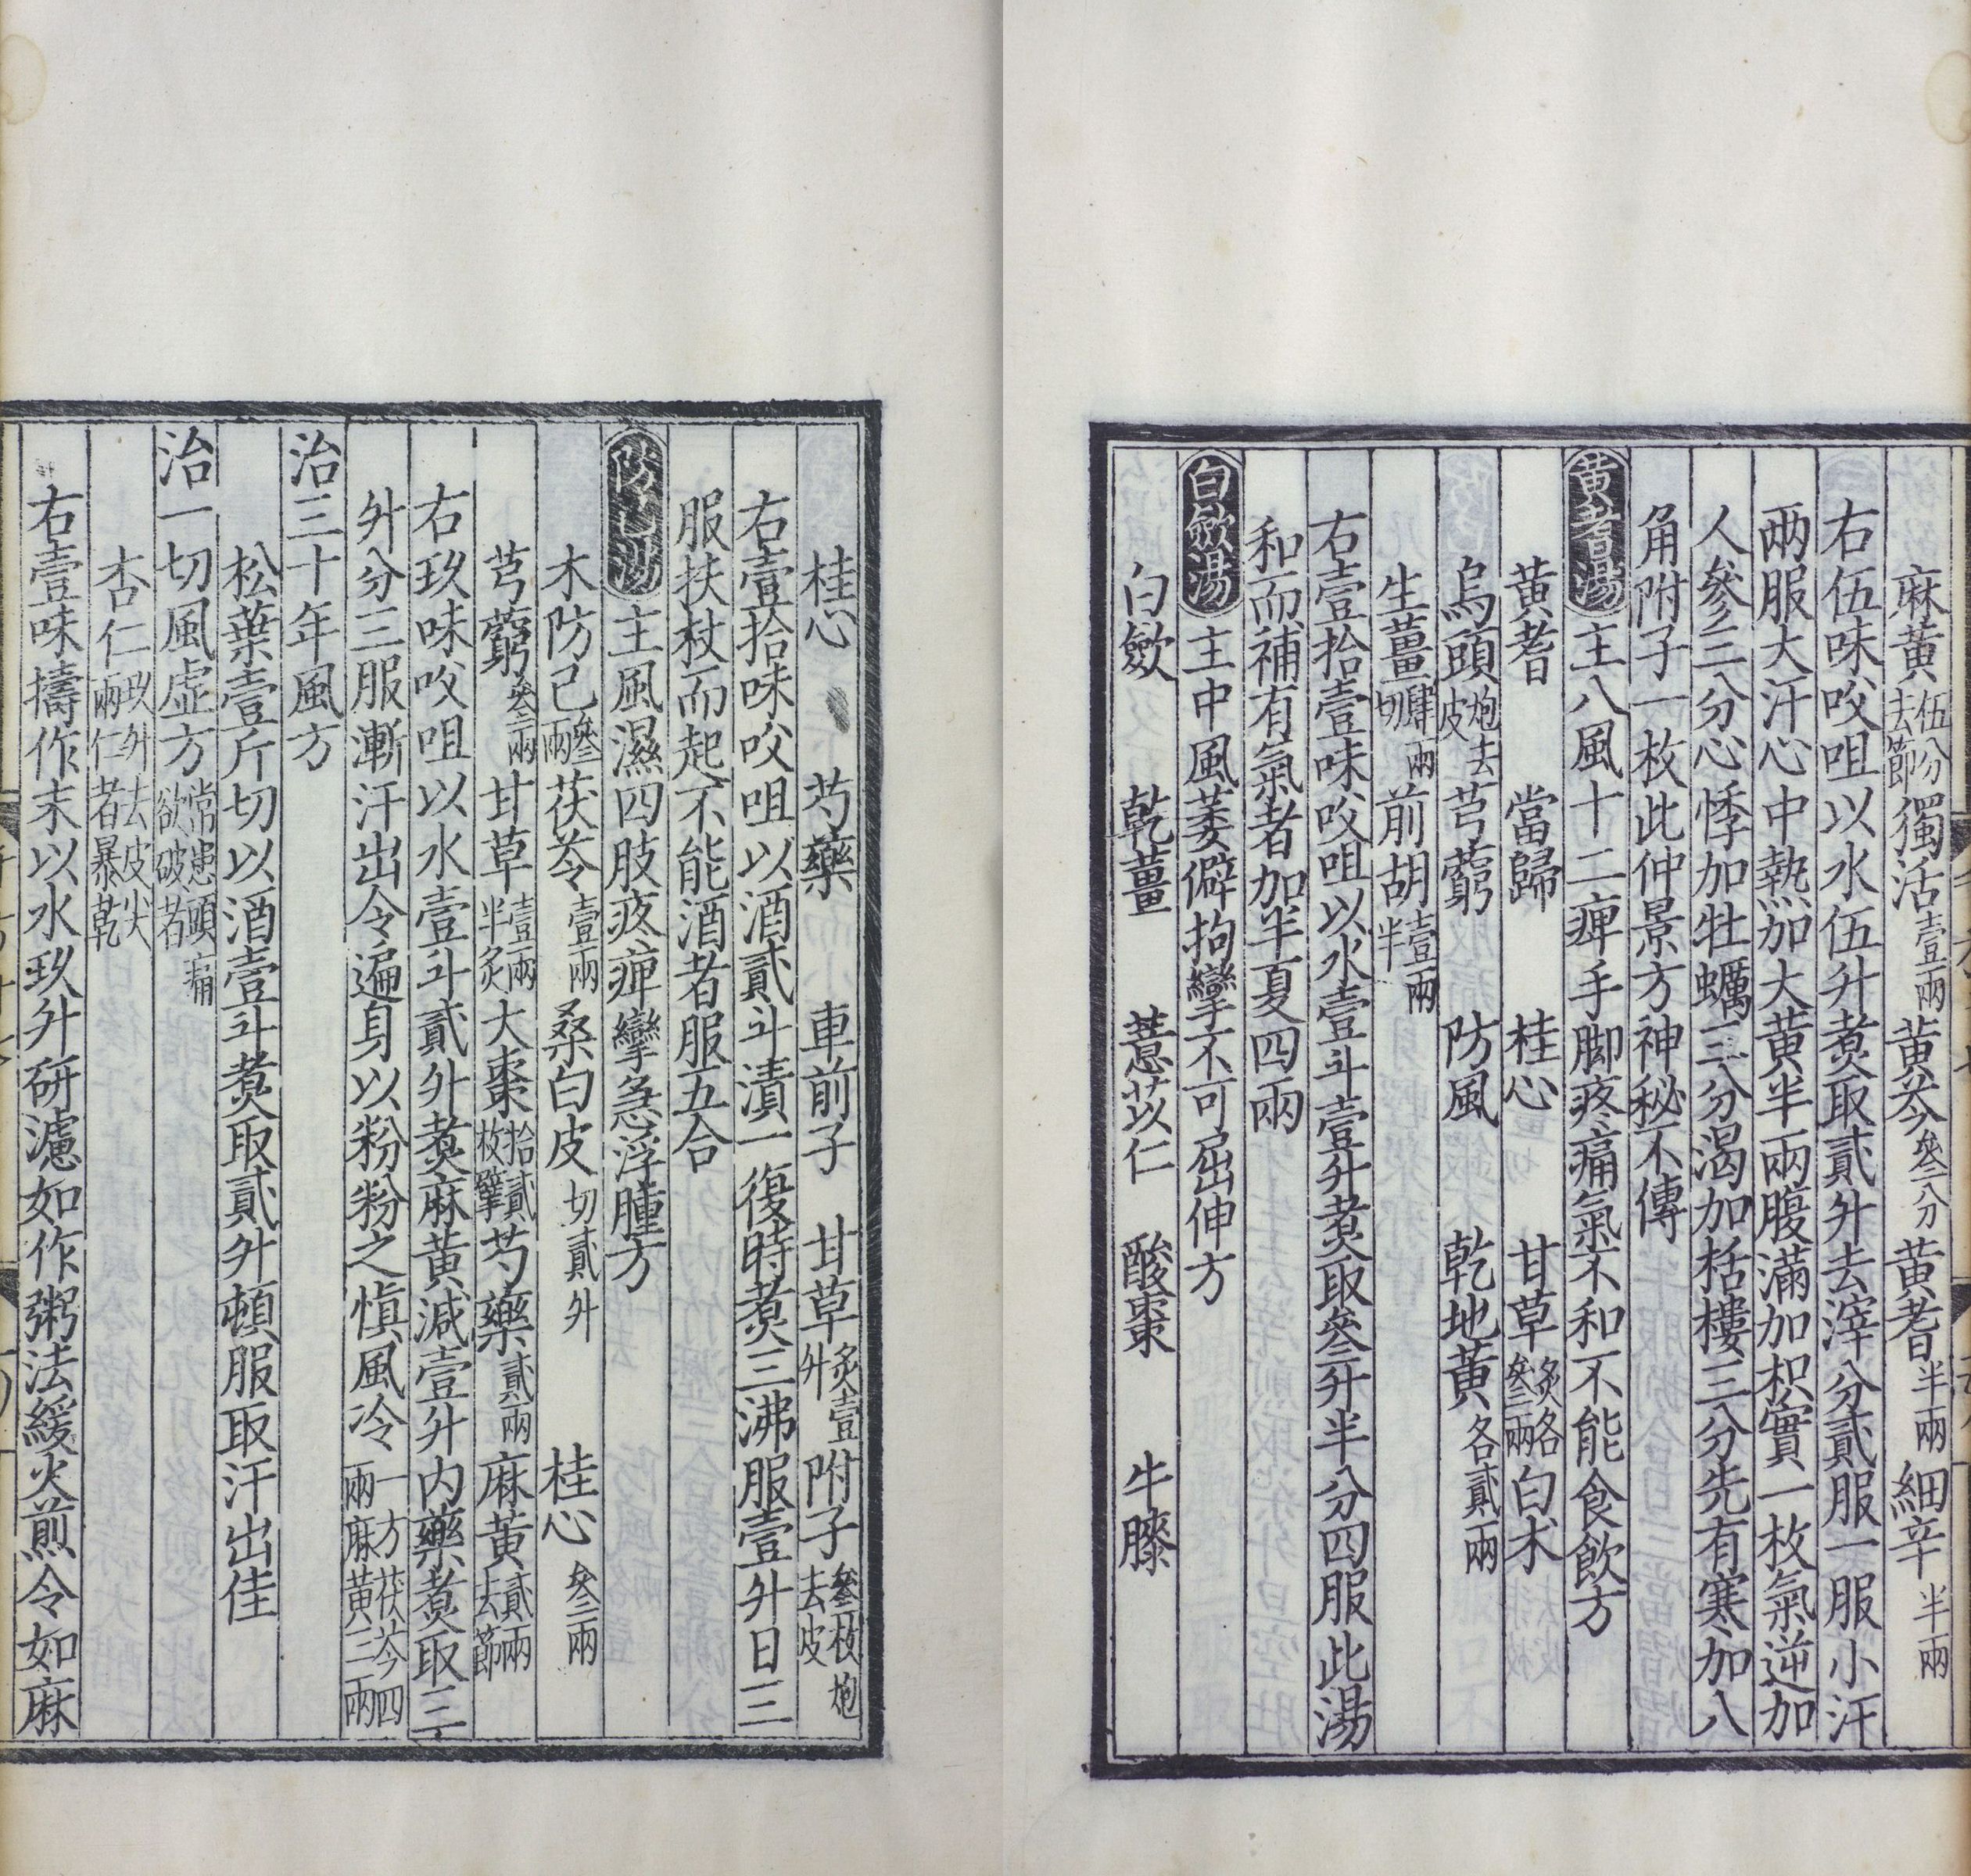 麻黄伍分去節獨活壹兩黄芩叄分黄耆半兩細辛半兩
右伍味㕮咀以水伍升煑取貳升去滓分貳服一服小汗
兩服大汗心中熱加大黄半兩腹滿加枳實一枚氣逆加
人參三分心悸加牡蠣三分渴加栝樓三分先有寒加八
角附子一枚此仲景方神秘不傳
黄耆湯主八風十二痺手脚疼痛氣不和不能食飲方
黄耆　當歸　桂心　甘草炙各叄兩白朮
烏頭炮去皮芎藭　防風　乾地黄各貳兩
生薑肆兩切前胡壹兩半
右壹拾壹味㕮咀以水壹斗壹升煑取叄升半分四服此湯
和而補有氣者加半夏四兩
白歛湯主中風萎僻拘攣不可屈伸方
白歛　乾薑　薏苡仁　酸棗　牛膝
桂心　芍藥　車前子　甘草炙壹升附子叄枚炮去皮
右壹拾味㕮咀以酒貳斗漬一復時煑三沸服壹升日三
服扶杖而起不能酒者服五合
防己湯主風濕四肢疼痺攣急浮腫方
木防己叄兩茯苓壹兩桑白皮切貳升　桂心叄兩
芎藭叄兩甘草壹兩半炙大棗拾貳枚擘芍藥貳兩麻黄貳兩去節
右玖味㕮咀以水壹斗貳升煑麻黄減壹升内藥煑取三
升分三服漸汗出令遍身以粉粉之慎風冷一方茯苓四兩麻黄三兩
治三十年風方
松葉壹斤切以酒壹斗煑取貳升頓服取汗出佳
治一切風虚方常患頭痛欲破者
杏仁玖升去皮尖兩仁者暴乾
右壹味擣作末以水玖升研濾如作粥法緩火煎令如麻